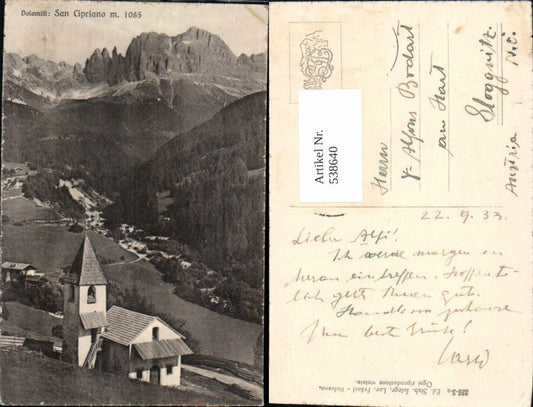 Dolomiti: San Cipriano m. 1085
Artikel Nr.
538640
Herrn
Alfons Bodart
am Hart
Gloggnitz
N.Ö.
Austria
22.9.33
Lieber Alfi!
Ich werde morgen in
Meran eintreffen. Hoffent-
lich geht Ihnen gut.
zuhause
Ihm beste Grüße!
Ed. Stab. fotogr. Lor. Fränzl - Bolzano.
Ogni riproduzione vietata